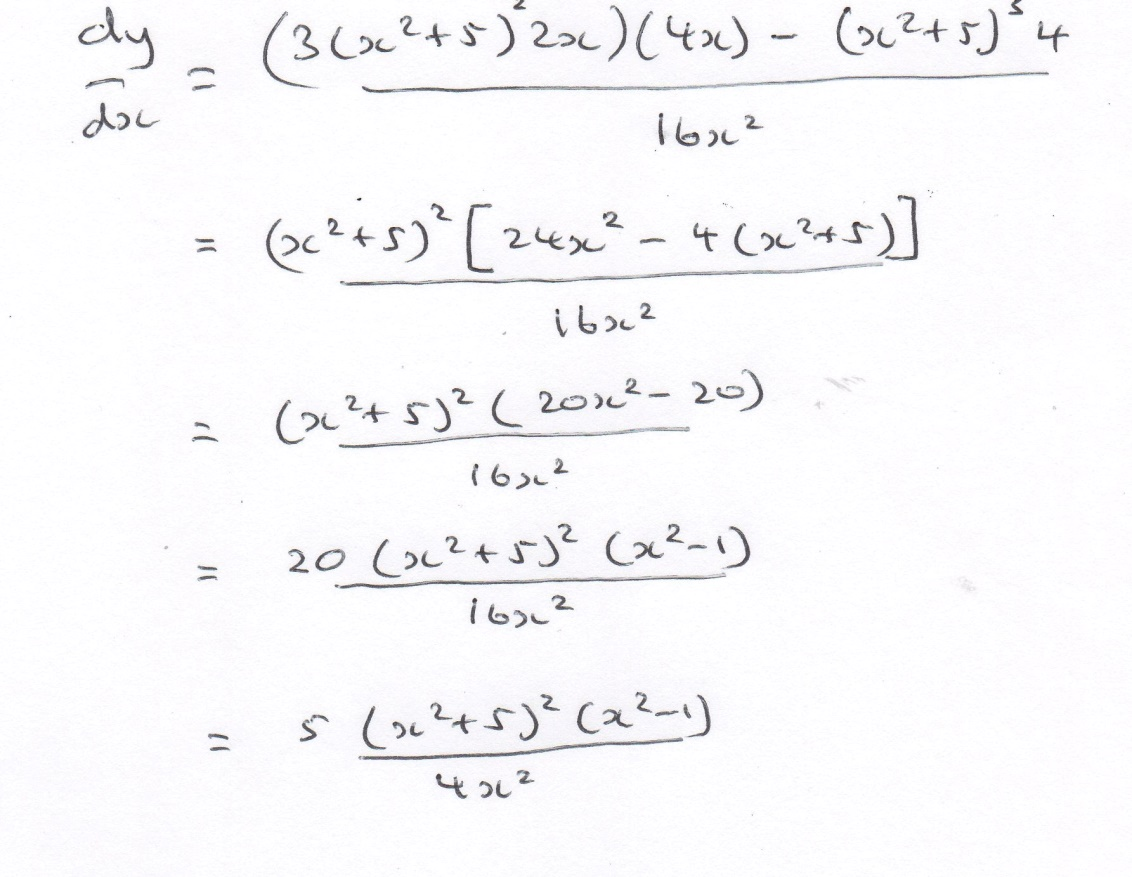 dy/dx = (3(x²+5)²2x)(4x) - (x²+5)³4 / 16x²
= (x²+5)²[24x² - 4(x²+5)] / 16x²
= (x²+5)²(20x² - 20) / 16x²
= 20(x²+5)²(x²-1) / 16x²
= 5(x²+5)²(x²-1) / 4x²